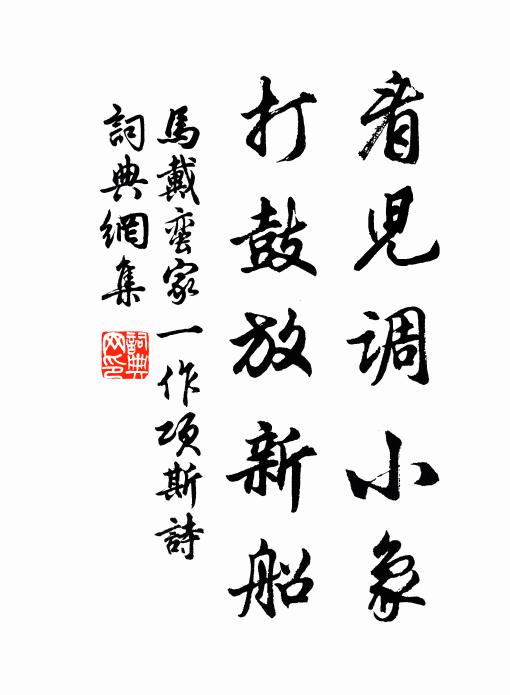 看兒調小象
打鼓放新船
馬戴蛮家一作項斯詩
詞典網集
詞典
网印